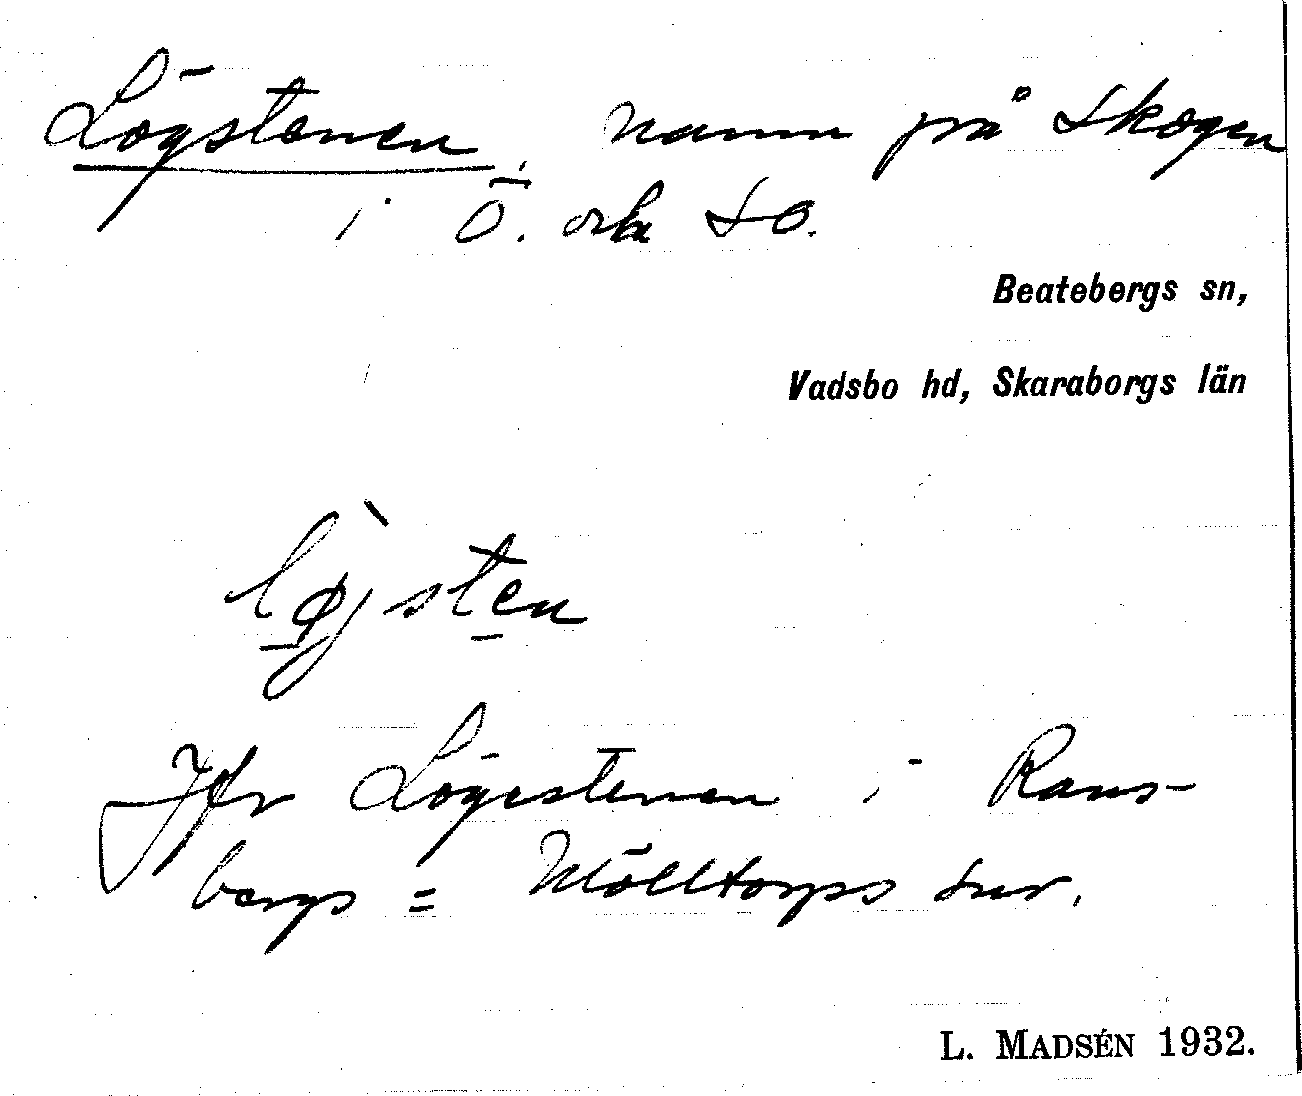 Lögstenen, namn på Skogen
i Ö. och SO.
Beatebergs sn,
Vadsbo hd, Skaraborgs län
lø̀jsten
Jfr Lögestenen i Rans-
bergs = Mölltorps snr.
L. MADSÉN 1932.